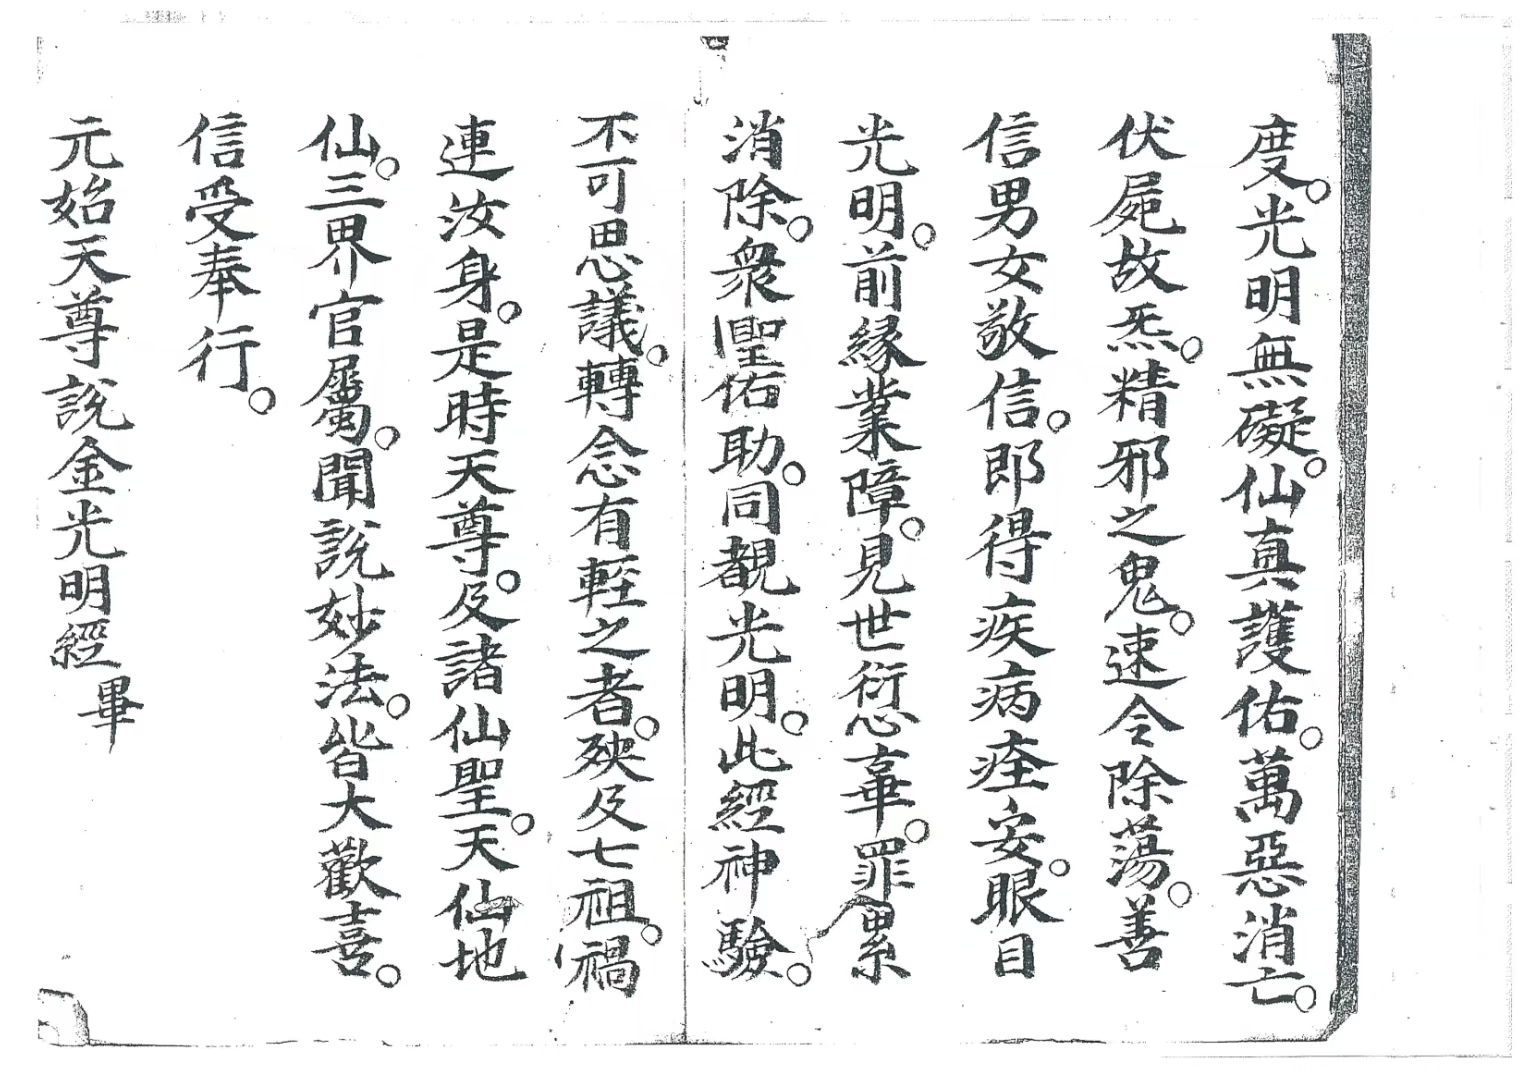 度。光明無礙。仙真護佑。萬惡消亡。
伏屍故炁。精邪之鬼。速令除蕩。善
信男女敬信。即得疾病痊安。眼目
光明。前緣業障。見世愆辜。罪累
消除。衆聖佑助。同覩光明。此經神驗。
不可思議。轉念有輕之者。殃及七祖。禍
連汝身。是時天尊。及諸仙聖。天仙地
仙。三界官屬。聞說妙法。皆大歡喜。
信受奉行。
元始天尊說金光明經畢